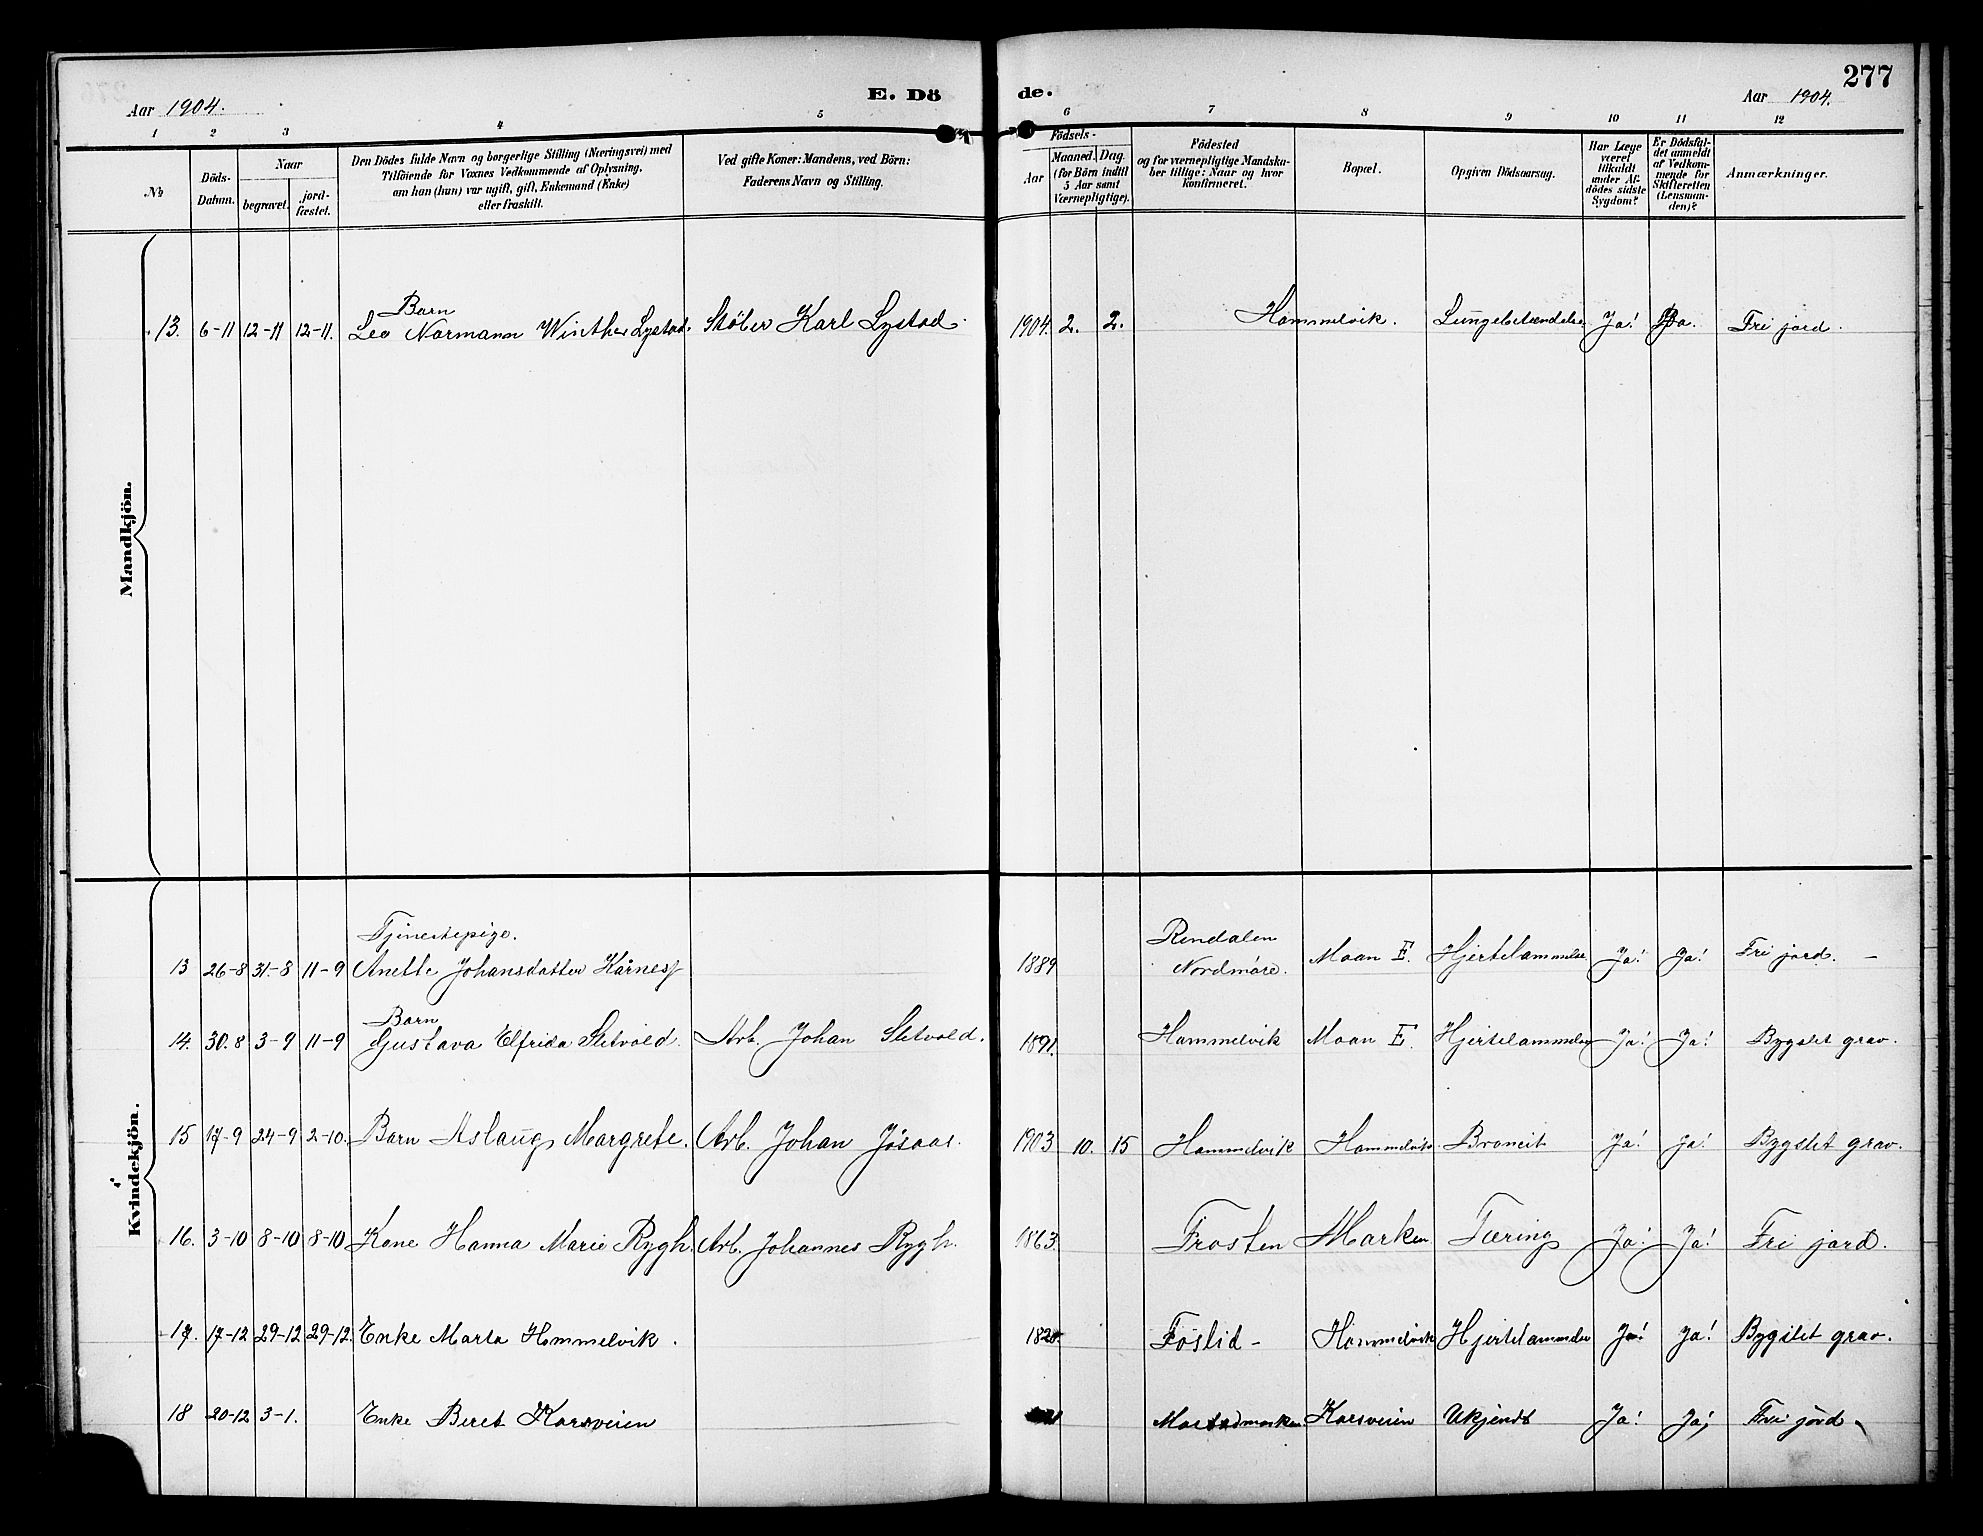 Aar 1904.
E. Dö
de.
Aar 1904.
277
1 2 3 4 5 6 7 8 9 10 11 12
No
Döds-
Datum.
Naar
begravet.
jord-
fæstet.
Den Dödes fulde Navn og borgerlige Stilling (Næringsvei) med
Tilföiende for Voxnes Vedkommende af Oplysning,
om han (hun) var ugift, gift, Enkemand (Enke)
eller fraskilt.
Ved gifte Koner: Mandens, ved Börn:
Faderens Navn og Stilling.
Födsels-
Aar
Maaned. Dag.
(for Börn indtil
5 Aar samt
Værnepligtige).
Födested
og for værnepligtige Mandska-
ber tillige: Naar og hvor
konfirmeret.
Bopæl.
Opgiven Dödsaarsag.
Har Læge
været
tilkaldt
under Af-
dödes sidste
Sygdom?
Er Dödsfal-
det anmeldt
af Vedkom-
mende for
Skifteretten
(Lensman-
den)?
Anmærkninger.
Mandkjön.
Barn
13. 6-11 12-11 12-11. Leo Normann Winther Lystad. Støber Karl Lystad. 1904. 2. 2. Hommelvik. Lungebetændelse Ja! Ja. Fri jord.
Kvindekjön.
Tjenestepige. Rendalen
13 26-8 31-8 11-9 Anette Johansdatter Kårnes 1889 Nordmøre. Moan E. Hjertelammelse Ja! Ja! Fri jord. -
Barn
14. 30.8 3-9 11-9 Gustava Elfrida Sletvold. Arb. Johan Sletvold. 1891. Hommelvik Moan E. Hjertelammelse Ja! Ja! Bygslet grav.
15 17-9 24-9 2-10. Barn Aslaug Margrete. Arb. Johan Jøsaas. 1903 10. 15 Hommelvik Hommelvik. Broncit Ja! Ja! Bygslet grav.
16. 3-10 8-10 8-10 Kone Hanna Marie Rygh. Arb. Johannes Rygh. 1863. Frosten Marken Tæring Ja! Ja! Fri jord.
17. 17-12 29-12 29-12. Enke Marta Hommelvik. Foslid - Hommelvik Hjertelammelse Ja! Ja! Bygslet grav.
18 20-12 3-1. Enke Beret Karsveien Mostadmarken Karsveien Ukjendt Ja! Ja! Fri jord